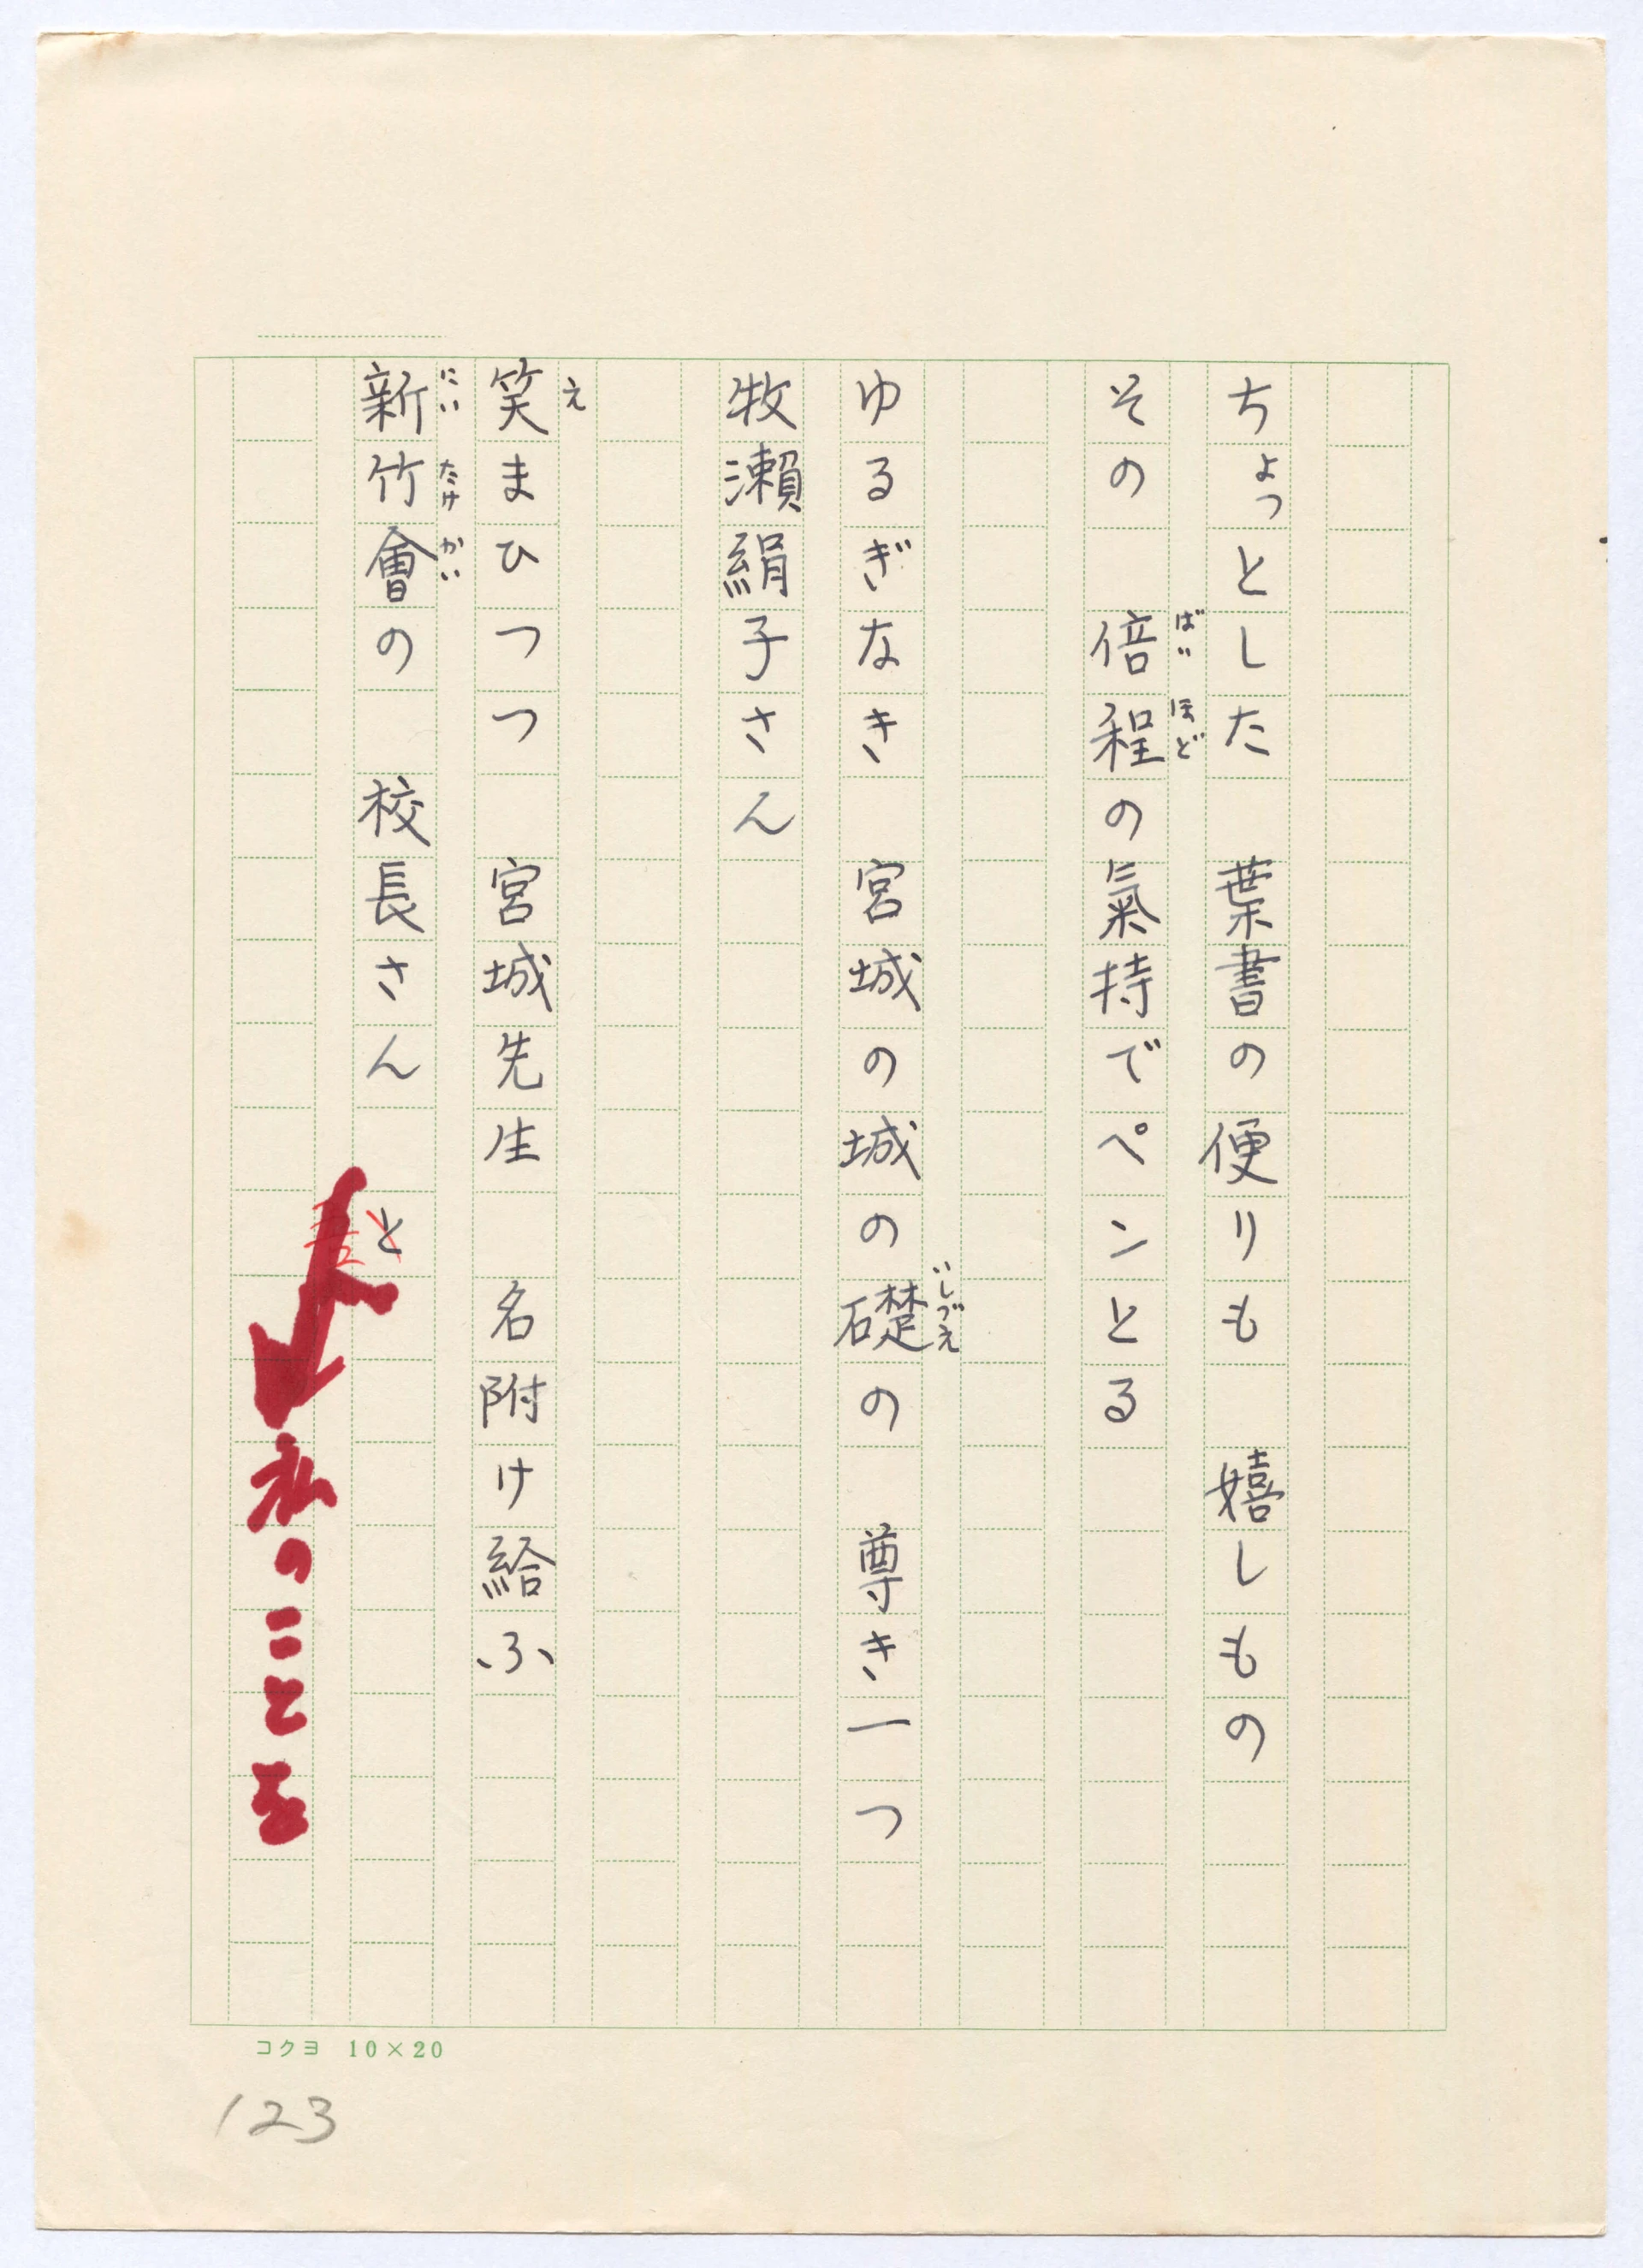 ちょっとした　葉書の便りも　嬉しもの
その　倍程の氣持でペンとる
ばい ほど
ゆるぎなき　宮城の城の礎の　尊き一つ
いしづえ
牧瀨絹子さん
笑まひつつ　宮城先生　名附け給ふ
え
新竹會の　校長さん　と
にい たけ かい
私のことを
コクヨ 10×20
123